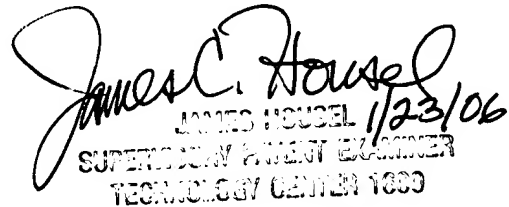 James C. Housel
1/23/06
JAMES HOUSEL
SUPERVISORY PATENT EXAMINER
TECHNOLOGY CENTER 1600